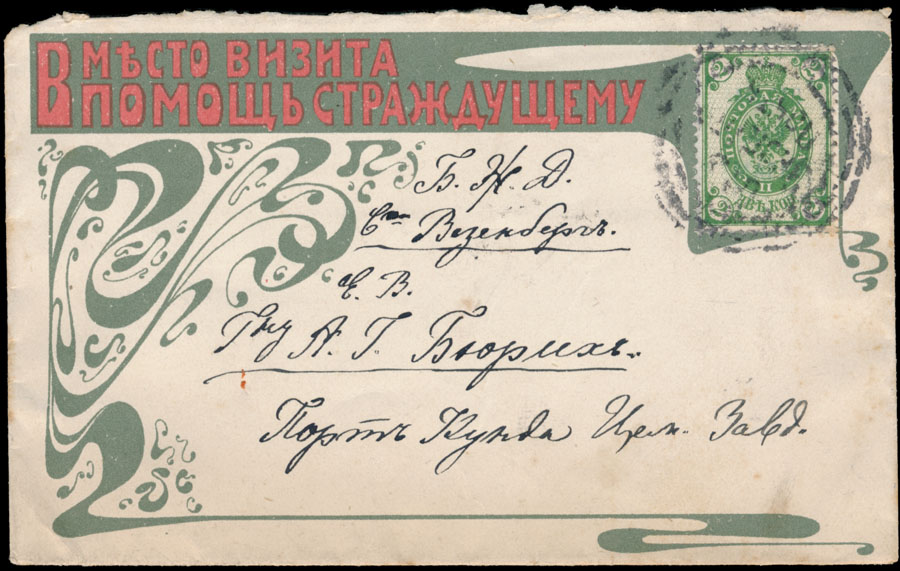 Вмѣсто визита
помощь страждущему
Б. Ж. Д.
Ст. Везенбергъ.
Е. В.
Гну А. Г. Бюрихъ.
Портъ Кунда Цем. Завд.
2 2
ПОЧТОВАЯ
ДВѢ КОП.
2 2